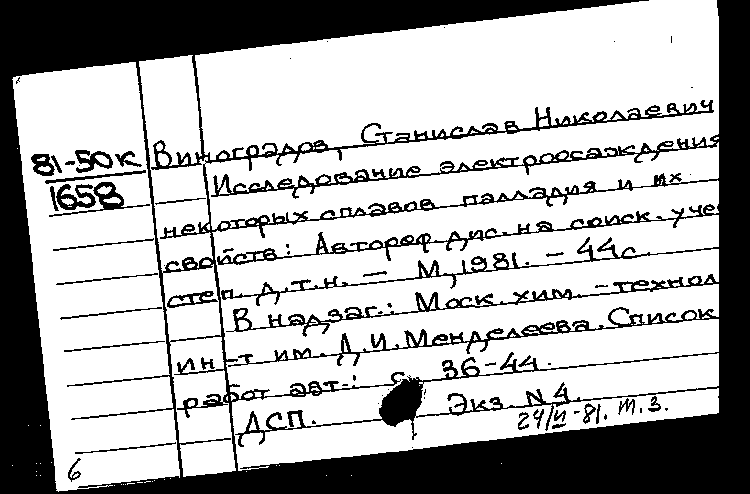 81-50к Виноградов, Станислав Николаевич
1658 Исследование электроосаждения
некоторых сплавов палладия и их
свойств: Автореф. дис. на соиск. уче
степ. д.т.н. - М, 1981. - 44с.
В надзаг.: Моск. хим. - технол
ин-т им. Д.И. Менделеева. Список
работ авт.: с 36-44.
ДСП. Экз. N 4.
24/II-81. т.з.
6